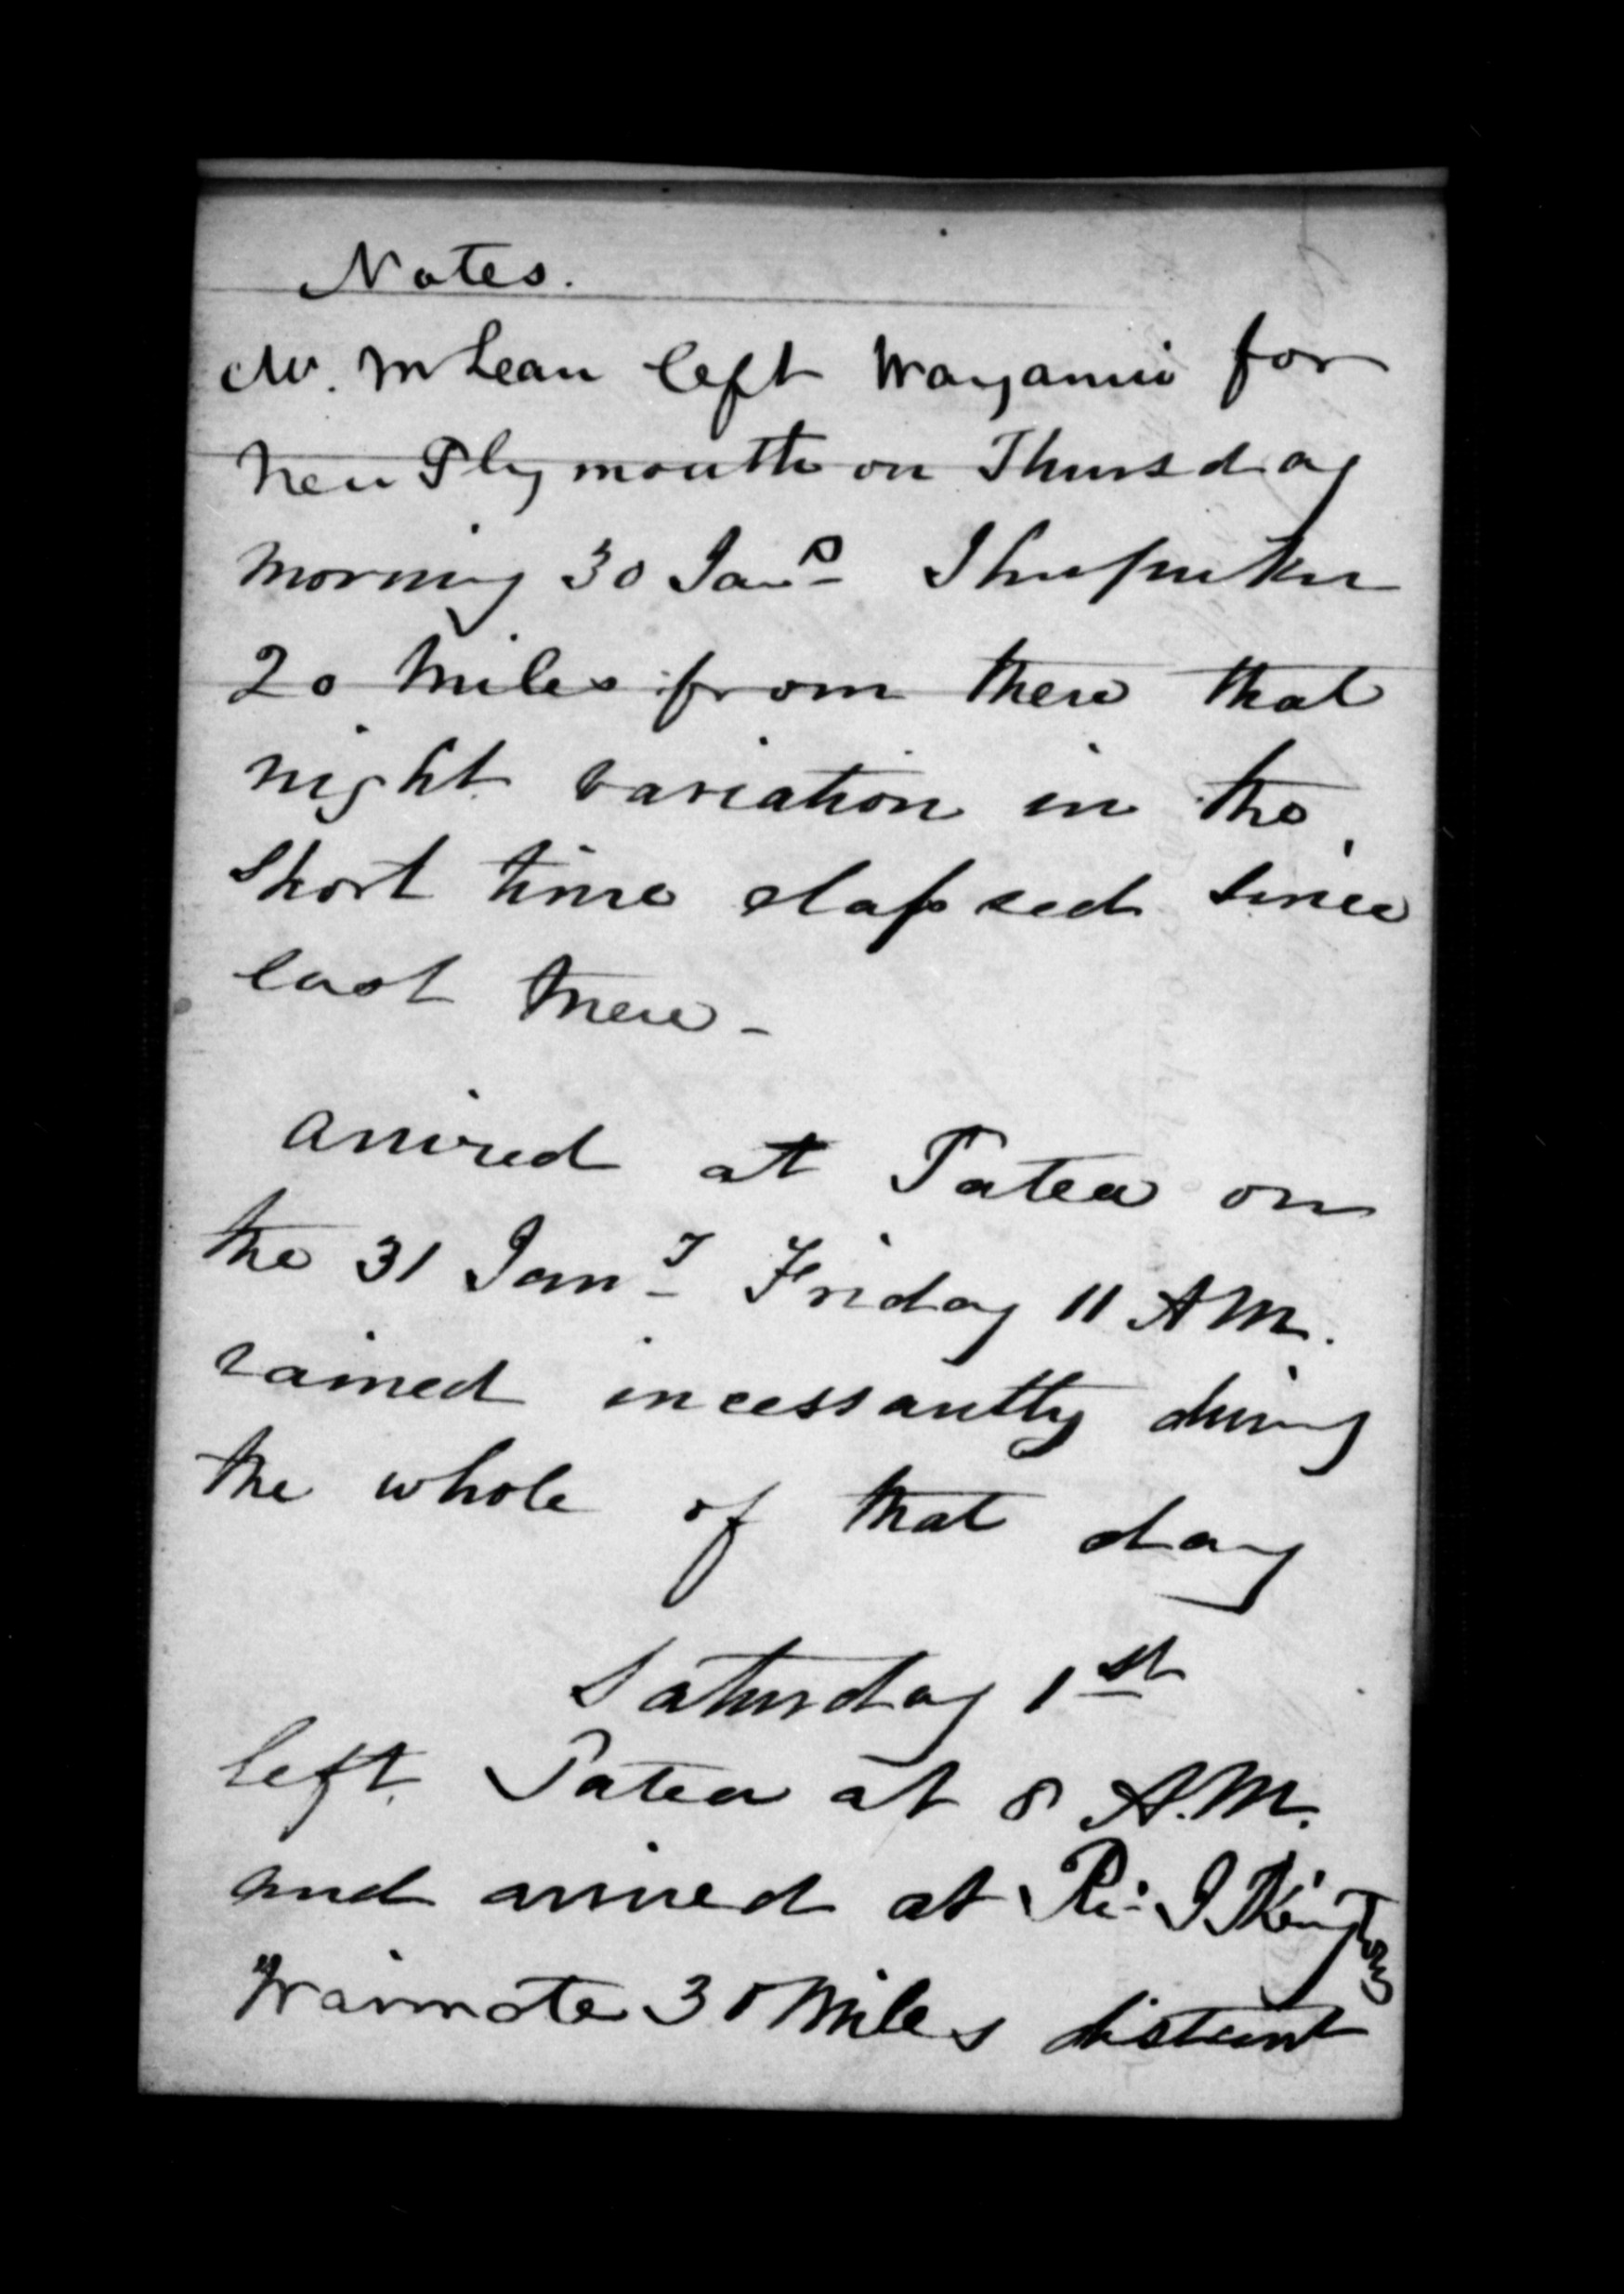 Notes.
Mr. McLean left Wanganui for
New Plymouth on Thursday
morning 30 Jany
20 miles from there that
night variation in the
short time elapsed since
last there -
arrived at Patea on
the 31 Jany Friday 11 AM.
rained incessantly during
the whole of that day
Saturday 1st
left Patea at 8 A.M.
and arrived at
Waimate 30 Miles distant